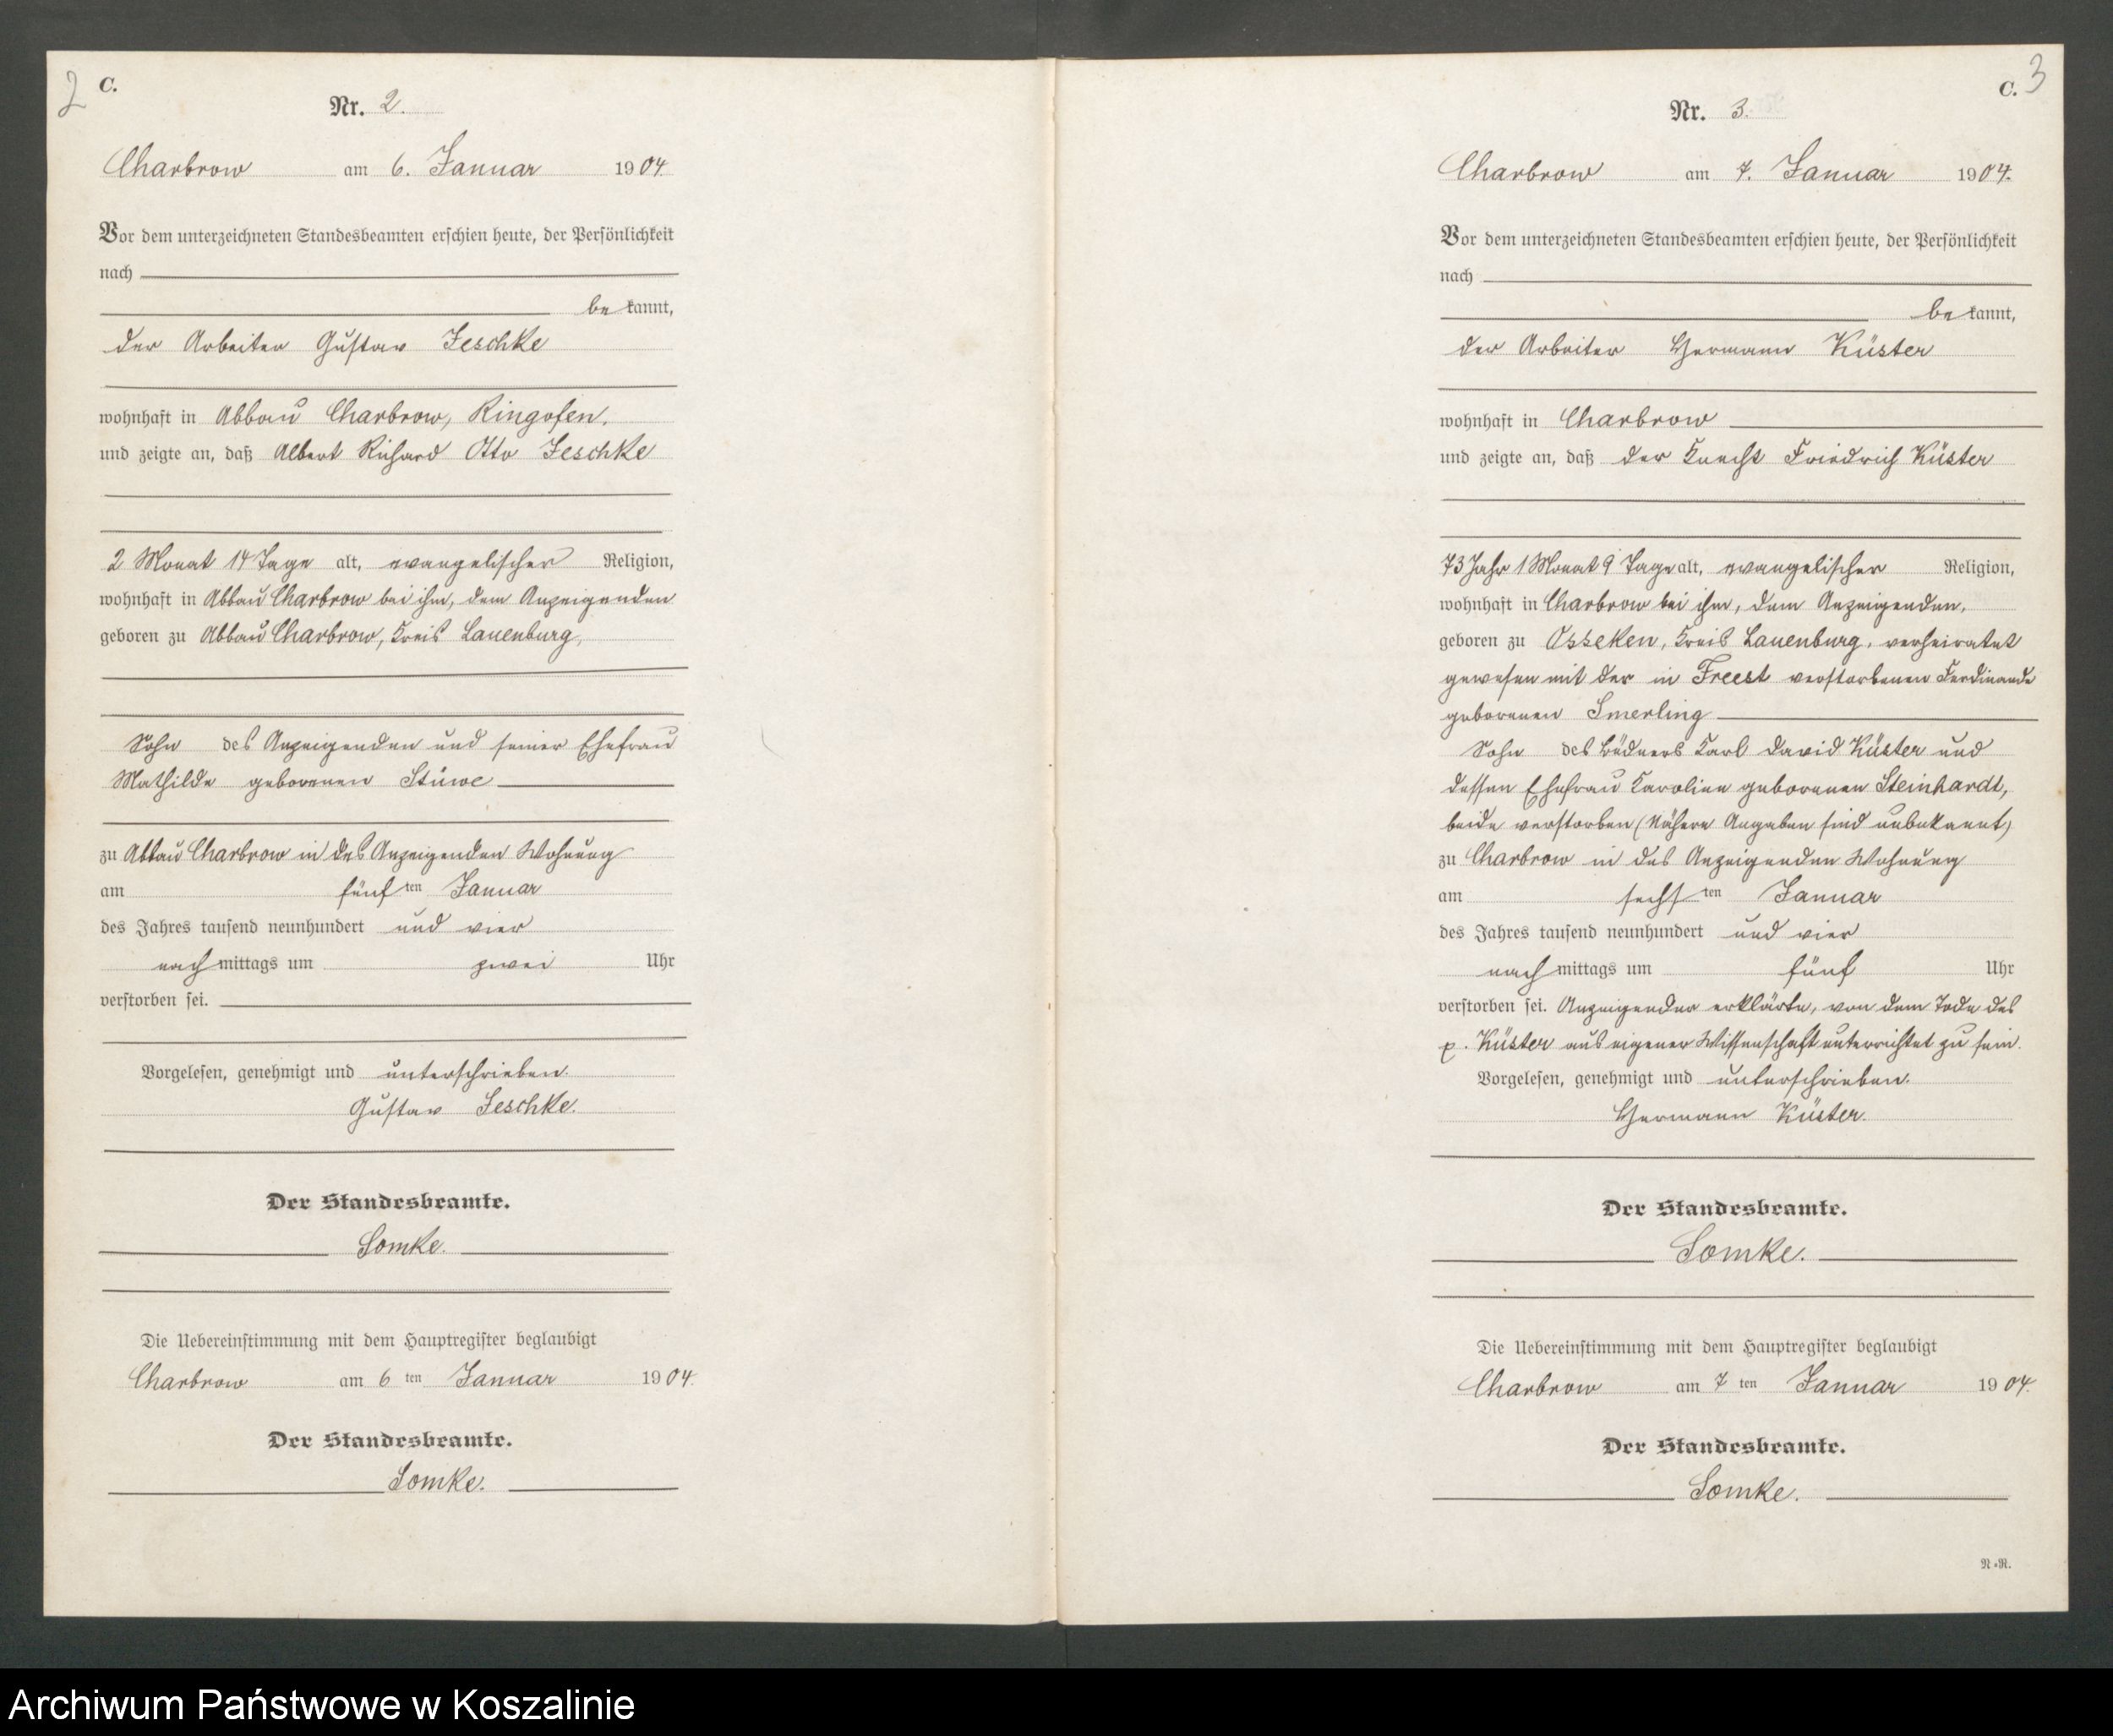 2
C.
Nr. 2.
Charbrow am 6. Januar 1904.
Vor dem unterzeichneten Standesbeamten erschien heute, der Persönlichkeit
nach
be kannt,
der Arbeiter Gustav Jeschke
wohnhaft in Abbau Charbrow, Ringofen,
und zeigte an, daß Albert Richard Otto Jeschke
2 Monat 14 Tage alt, evangelischer Religion,
wohnhaft in Abbau Charbrow bei ihm, dem Anzeigenden
geboren zu Abbau Charbrow, Kreis Lauenburg,
Sohn des Anzeigenden und seiner Ehefrau
Mathilde geborenen Stüwe
zu Abbau Charbrow in des Anzeigenden Wohnung
am fünf ten Januar
des Jahres tausend neunhundert und vier
nach mittags um zwei Uhr
verstorben sei.
Vorgelesen, genehmigt und unterschrieben.
Gustav Jeschke.
Der Standesbeamte.
Lomke.
Die Uebereinstimmung mit dem Hauptregister beglaubigt
Charbrow am 6 ten Januar 1904.
Der Standesbeamte.
Lomke.
C. 3
Nr. 3.
Charbrow am 7. Januar 1904.
Vor dem unterzeichneten Standesbeamten erschien heute, der Persönlichkeit
nach
be kannt,
der Arbeiter Hermann Küster
wohnhaft in Charbrow
und zeigte an, daß der Knecht Friedrich Küster
73 Jahr 1 Monat 9 Tage alt, evangelischer Religion,
wohnhaft in Charbrow bei ihm, dem Anzeigenden,
geboren zu Osseken, Kreis Lauenburg, verheiratet
gewesen mit der in Freest verstorbenen Ferdinande
geborenen Smerling
Sohn des Büdners Karl David Küster und
dessen Ehefrau Karoline geborenen Steinhardt,
beide verstorben (Nähere Angaben sind unbekannt)
zu Charbrow in des Anzeigenden Wohnung
am sechs ten Januar
des Jahres tausend neunhundert und vier
nach mittags um fünf Uhr
verstorben sei. Anzeigender erklärte, von dem Tode des
p. Küster aus eigener Wissenschaft unterrichtet zu sein.
Vorgelesen, genehmigt und unterschrieben.
Hermann Küster.
Der Standesbeamte.
Lomke.
Die Uebereinstimmung mit dem Hauptregister beglaubigt
Charbrow am 7 ten Januar 1904.
Der Standesbeamte.
Lomke.
N.-R.
Archiwum Państwowe w Koszalinie